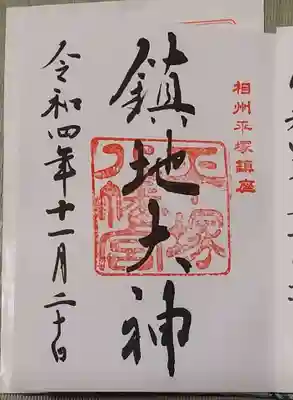 相州平塚鎮座
鎮地大神
平塚
八幡宮
令和四年十一月二十日